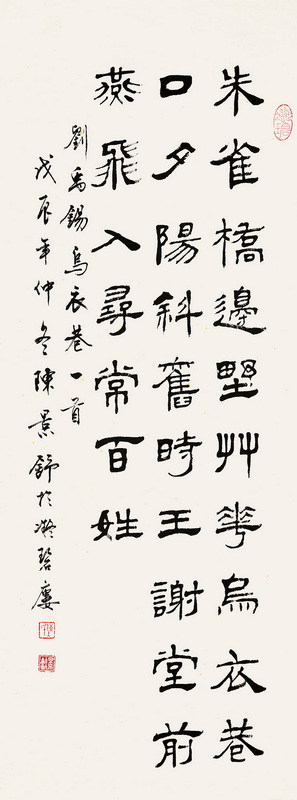 朱雀橋邊野艸華烏衣巷
口夕陽斜舊時王謝堂前
燕飛入尋常百姓
劉禹錫烏衣巷一首
戊辰年仲冬陳景舒於凝碧廔